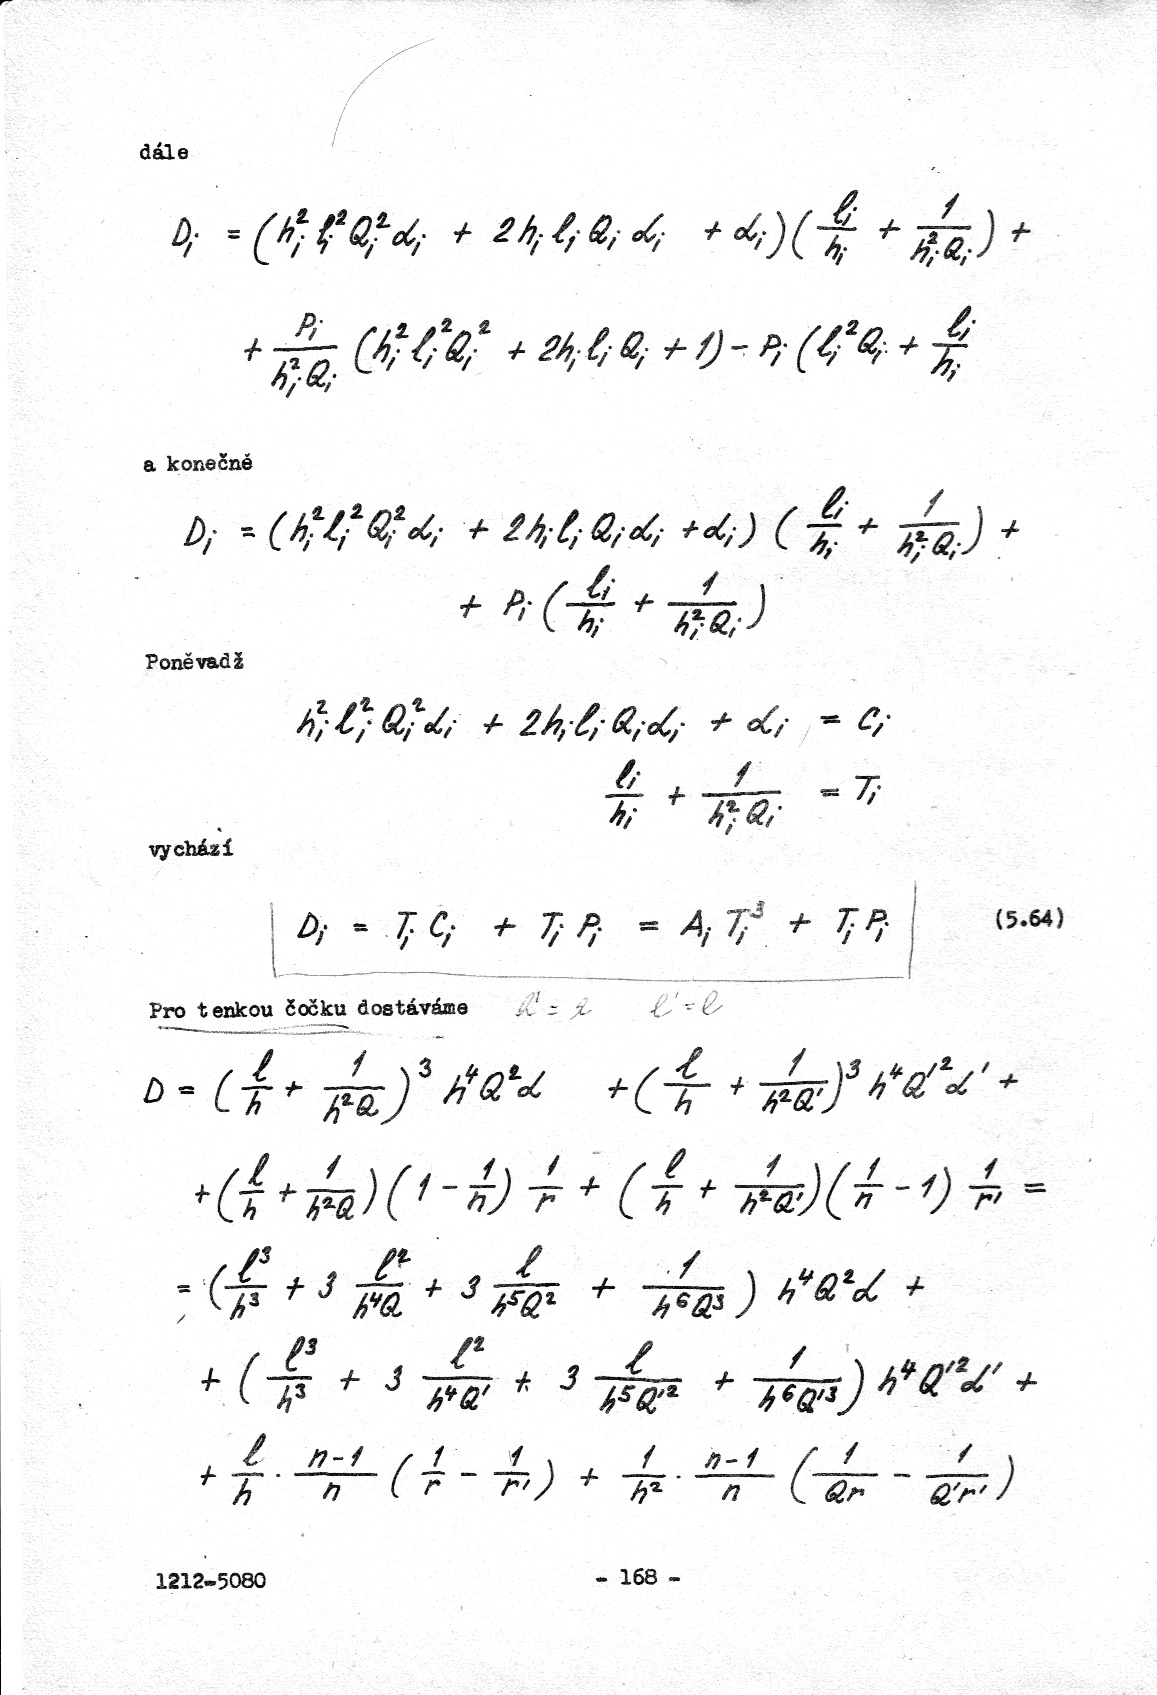 dále
D_i = (h_i^2 l_i^2 Q_i^2 α_i + 2 h_i l_i Q_i α_i + α_i)(l_i/h_i + 1/(h_i^2 Q_i)) +
+ P_i/(h_i^2 Q_i) (h_i^2 l_i^2 Q_i^2 + 2 h_i l_i Q_i + 1) - P_i (l_i^2 Q_i + l_i/h_i
a konečně
D_i = (h_i^2 l_i^2 Q_i^2 α_i + 2 h_i l_i Q_i α_i + α_i) (l_i/h_i + 1/(h_i^2 Q_i)) +
+ P_i (l_i/h_i + 1/(h_i^2 Q_i))
Poněvadž
h_i^2 l_i^2 Q_i^2 α_i + 2 h_i l_i Q_i α_i + α_i = C_i
l_i/h_i + 1/(h_i^2 Q_i) = T_i
vychází
D_i = T_i C_i + T_i P_i = A_i T_i^3 + T_i P_i (5.64)
Pro tenkou čočku dostáváme l' = l
D = (l/h + 1/(h^2 Q))^3 h^4 Q^2 α + (l/h + 1/(h^2 Q'))^3 h^4 Q'^2 α' +
+ (l/h + 1/(h^2 Q)) (1 - 1/n) 1/r + (l/h + 1/(h^2 Q')) (1/n - 1) 1/r' =
= (l^3/h^3 + 3 l^2/(h^4 Q) + 3 l/(h^5 Q^2) + 1/(h^6 Q^3)) h^4 Q^2 α +
+ (l^3/h^3 + 3 l^2/(h^4 Q') + 3 l/(h^5 Q'^2) + 1/(h^6 Q'^3)) h^4 Q'^2 α' +
+ l/h · (n-1)/n (1/r - 1/r') + 1/h^2 · (n-1)/n (1/(Qr) - 1/(Q'r'))
1212-5080 - 168 -